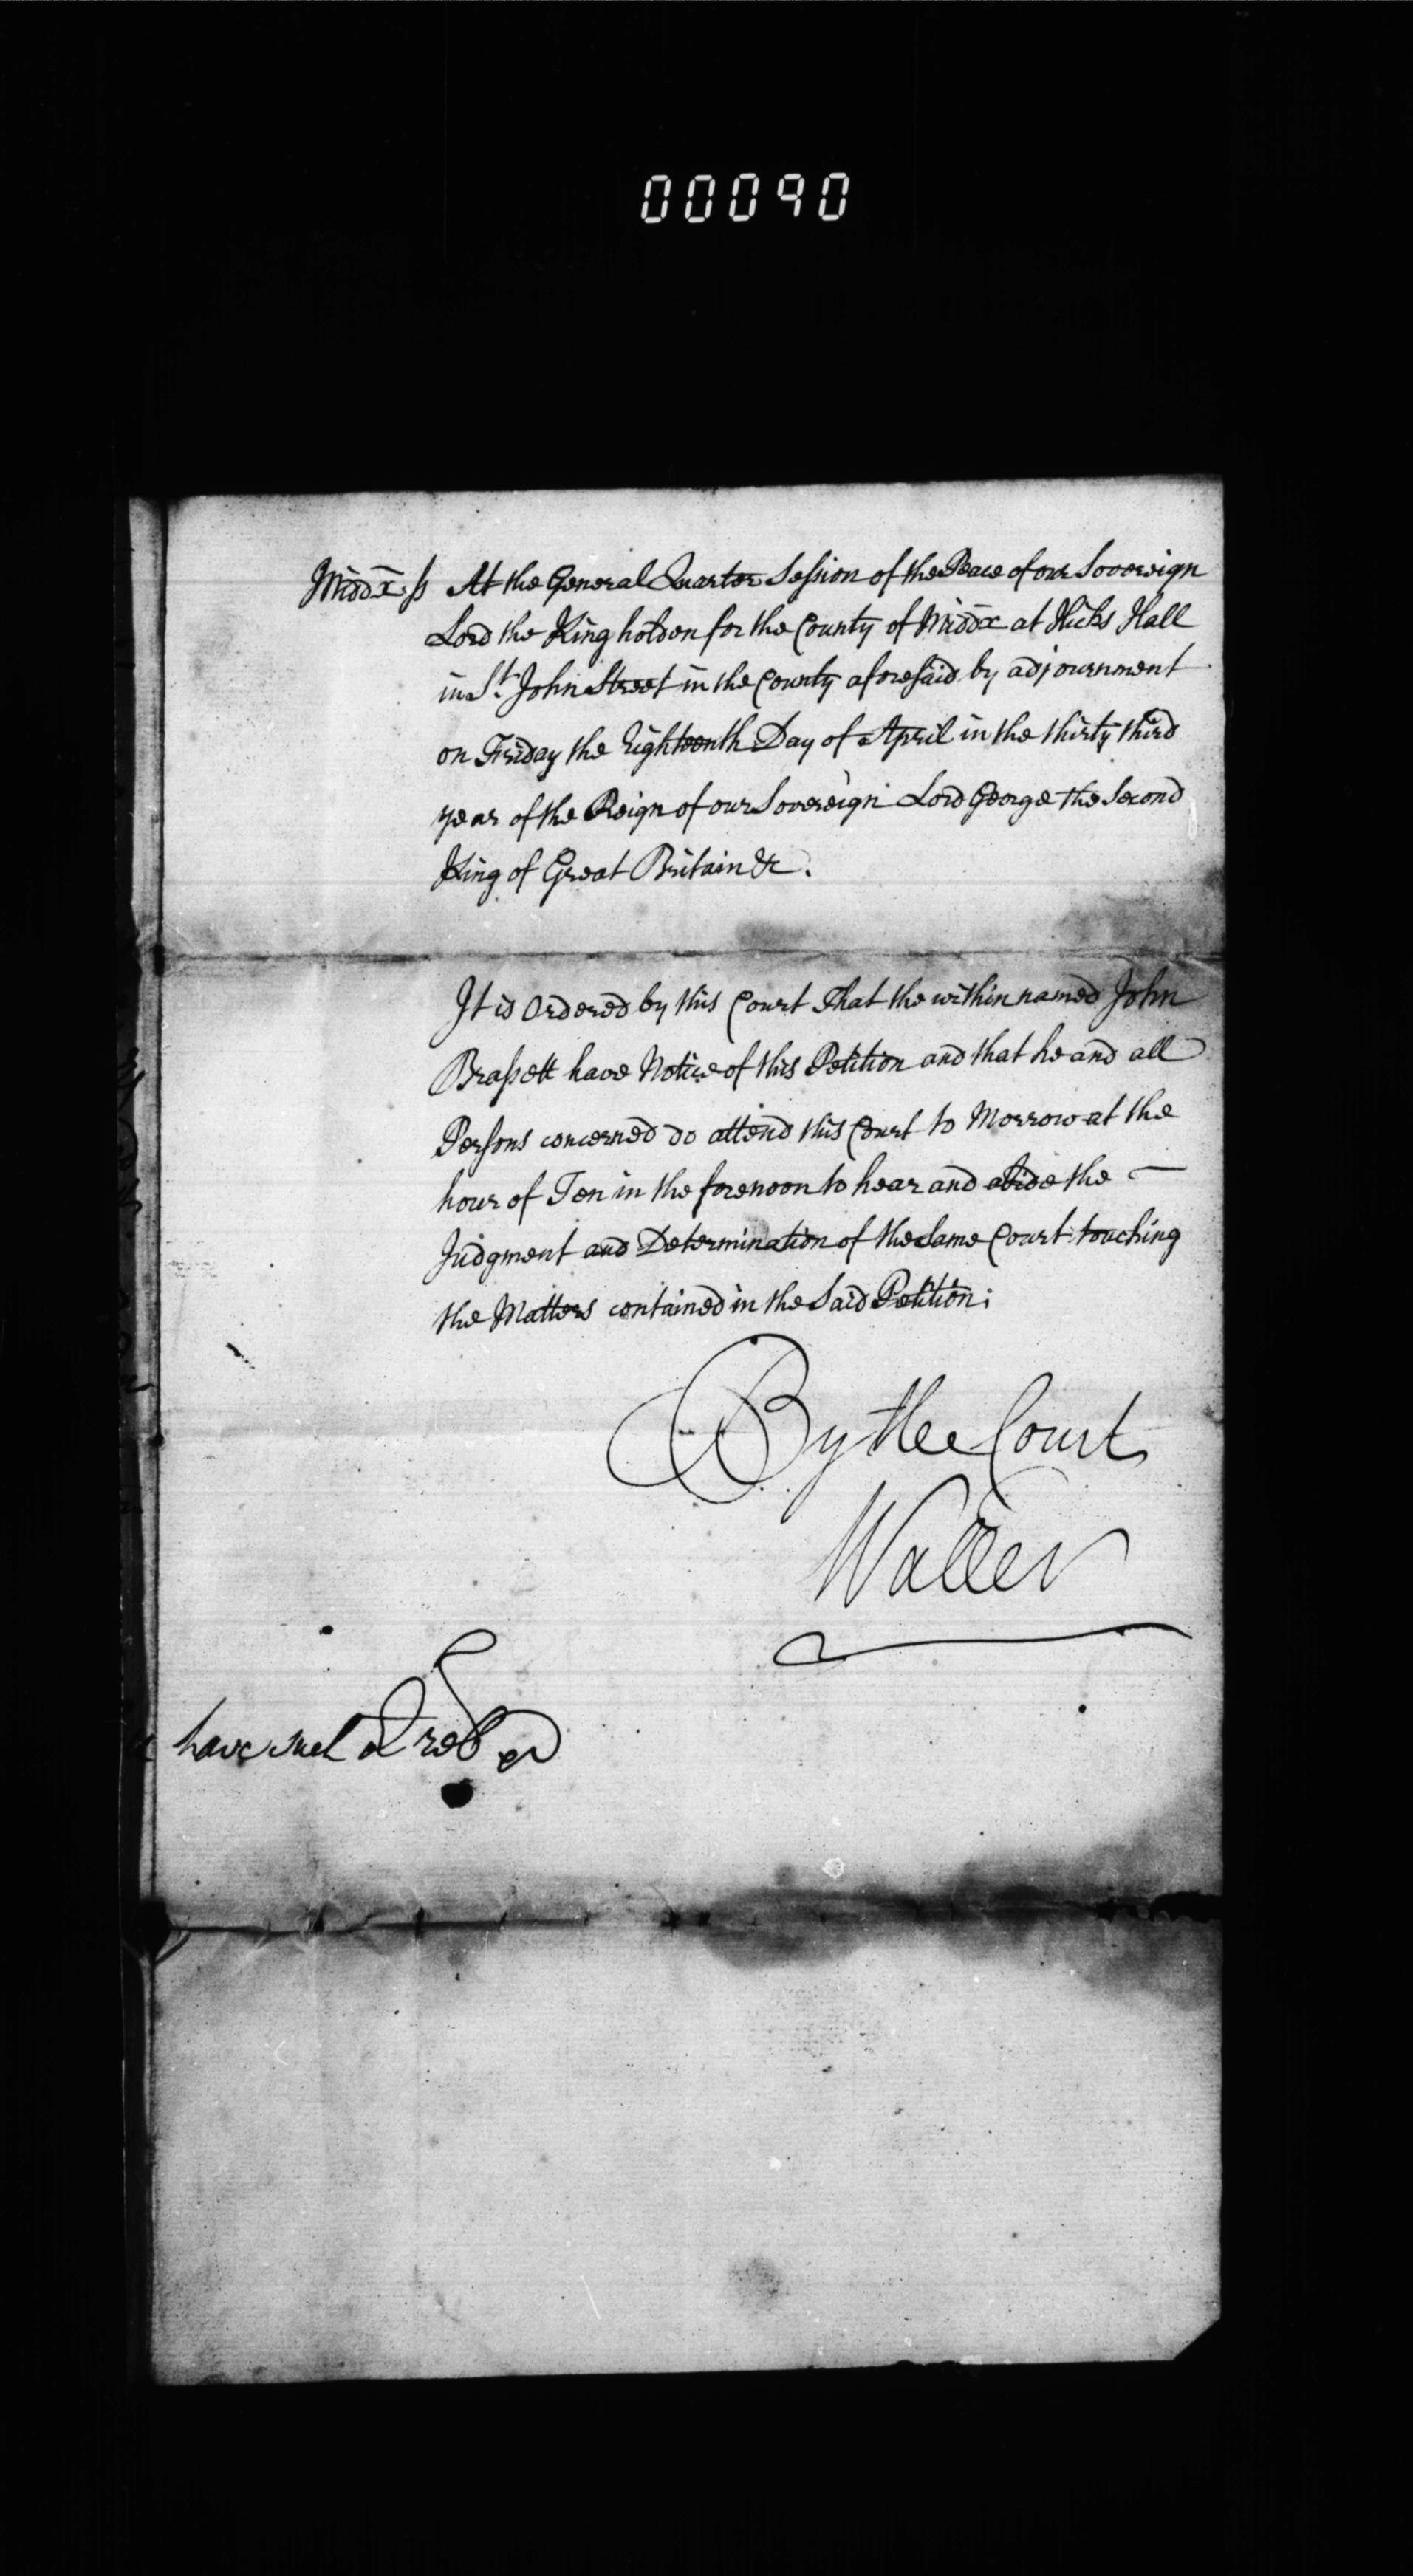 00090
Midd̄x ſs At the General Quarter Seſsion of the Peace of our Sovereign
Lord the King holden for the County of Midd̄x at Hicks Hall
in St. John Street in the County aforesaid by adjournment
on Friday the Eighteenth Day of April in the thirty third
year of the Reign of our Sovereign Lord George the Second
King of Great Britain &c.
It is Ordered by this Court That the within named John
Braſsett have Notice of this Petition and that he and all
Persons concerned do attend this Court to Morrow at the
hour of Ten in the forenoon to hear and abide the
Judgment and Determination of the Same Court touching
the Matters contained in the Said Petition;
By the Court
Waller
have such